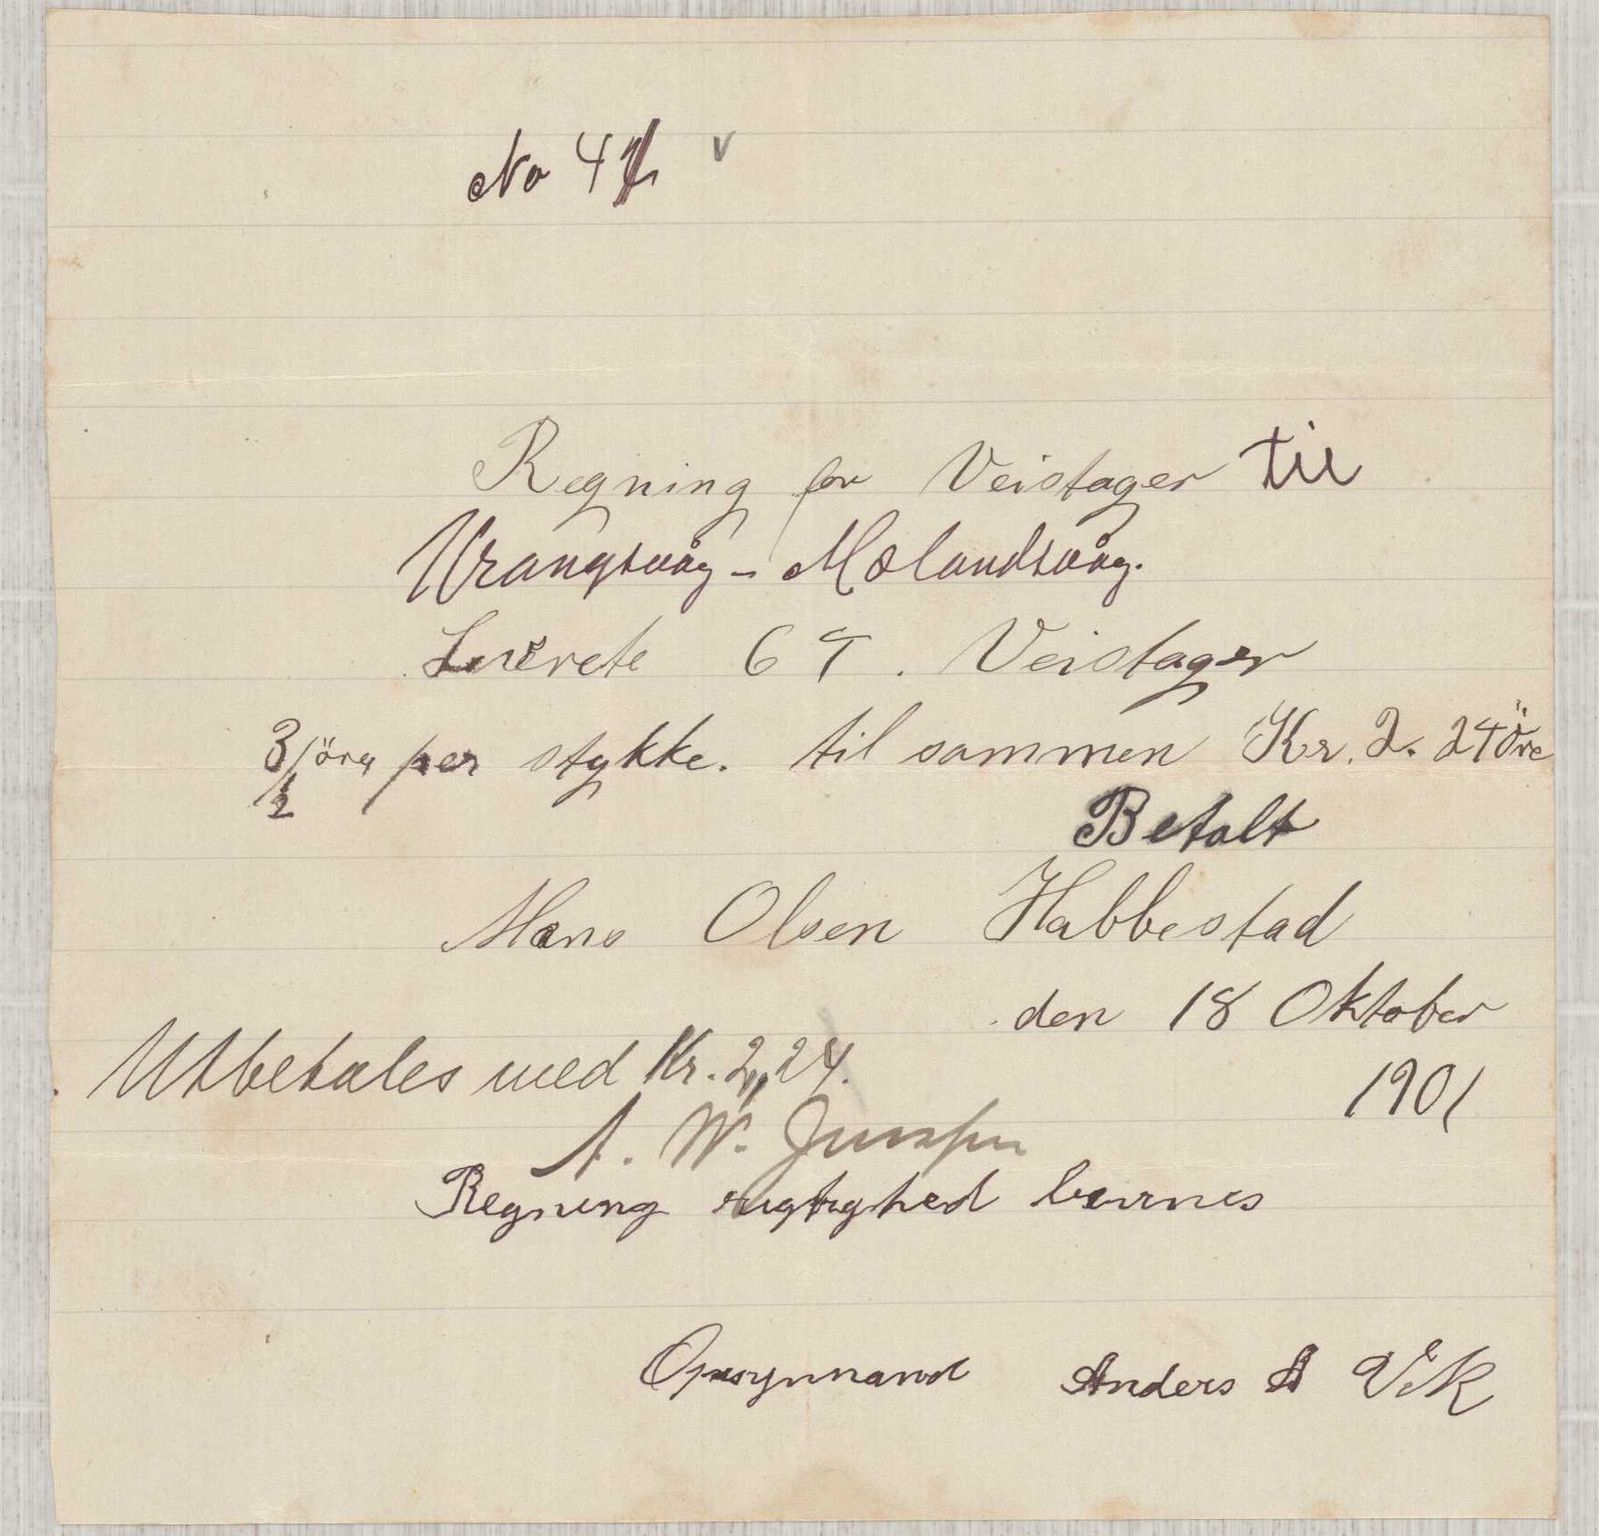 No 4
Regning for Veistager til
Vrangsvåg - Molandsvåg.
Leverete 64. Veistager
3 1/2 öre per stykke. til sammen Kr. 2. 24 Öre
Betalt
Hans Olsen Habbestad
den 18 Oktober
1901
Utbetales med Kr. 2,,24.
A. W.
Regning rigtighed
Opsynmand Anders A Vik